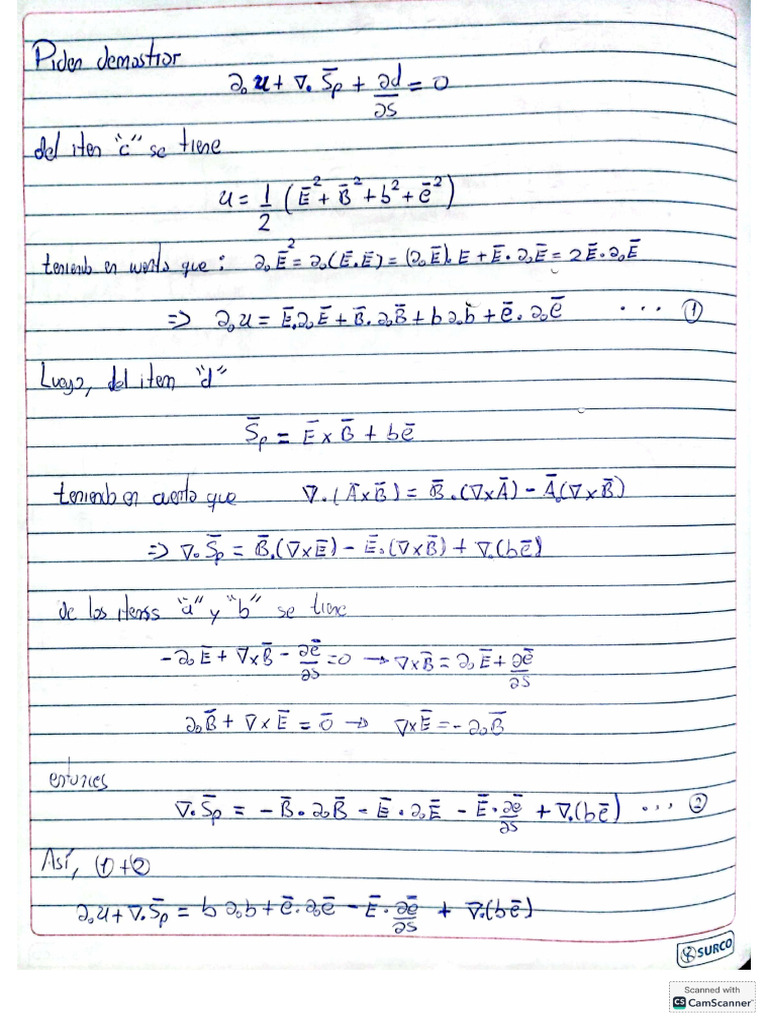 Piden demostrar
∂₀u + ∇·S̄ₚ + ∂d/∂s = 0
del item "c" se tiene
u = 1/2 (Ē² + B̄² + b² + ē²)
teniendo en cuenta que: ∂₀Ē² = ∂₀(Ē·Ē) = (∂₀Ē)·E + Ē·∂₀Ē = 2Ē·∂₀Ē
=> ∂₀u = Ē·∂₀Ē + B̄·∂₀B̄ + b∂₀b + ē·∂₀ē ... ①
Luego, del item "d"
S̄ₚ = Ē × B̄ + bē
teniendo en cuenta que ∇·(Ā×B̄) = B̄·(∇×Ā) - Ā·(∇×B̄)
=> ∇·S̄ₚ = B̄·(∇×Ē) - Ē·(∇×B̄) + ∇·(bē)
de los items "a" y "b" se tiene
-∂₀Ē + ∇×B̄ - ∂ē/∂s = 0 → ∇×B̄ = ∂₀Ē + ∂ē/∂s
∂₀B̄ + ∇×Ē = 0̄ → ∇×Ē = -∂₀B̄
entonces
∇·S̄ₚ = -B̄·∂₀B̄ - Ē·∂₀Ē - Ē·∂ē/∂s + ∇·(bē) ... ②
Así, ①+②
∂₀u + ∇·S̄ₚ = b∂₀b + ē·∂₀ē - Ē·∂ē/∂s + ∇·(bē)
SURCO
Scanned with
CS CamScanner